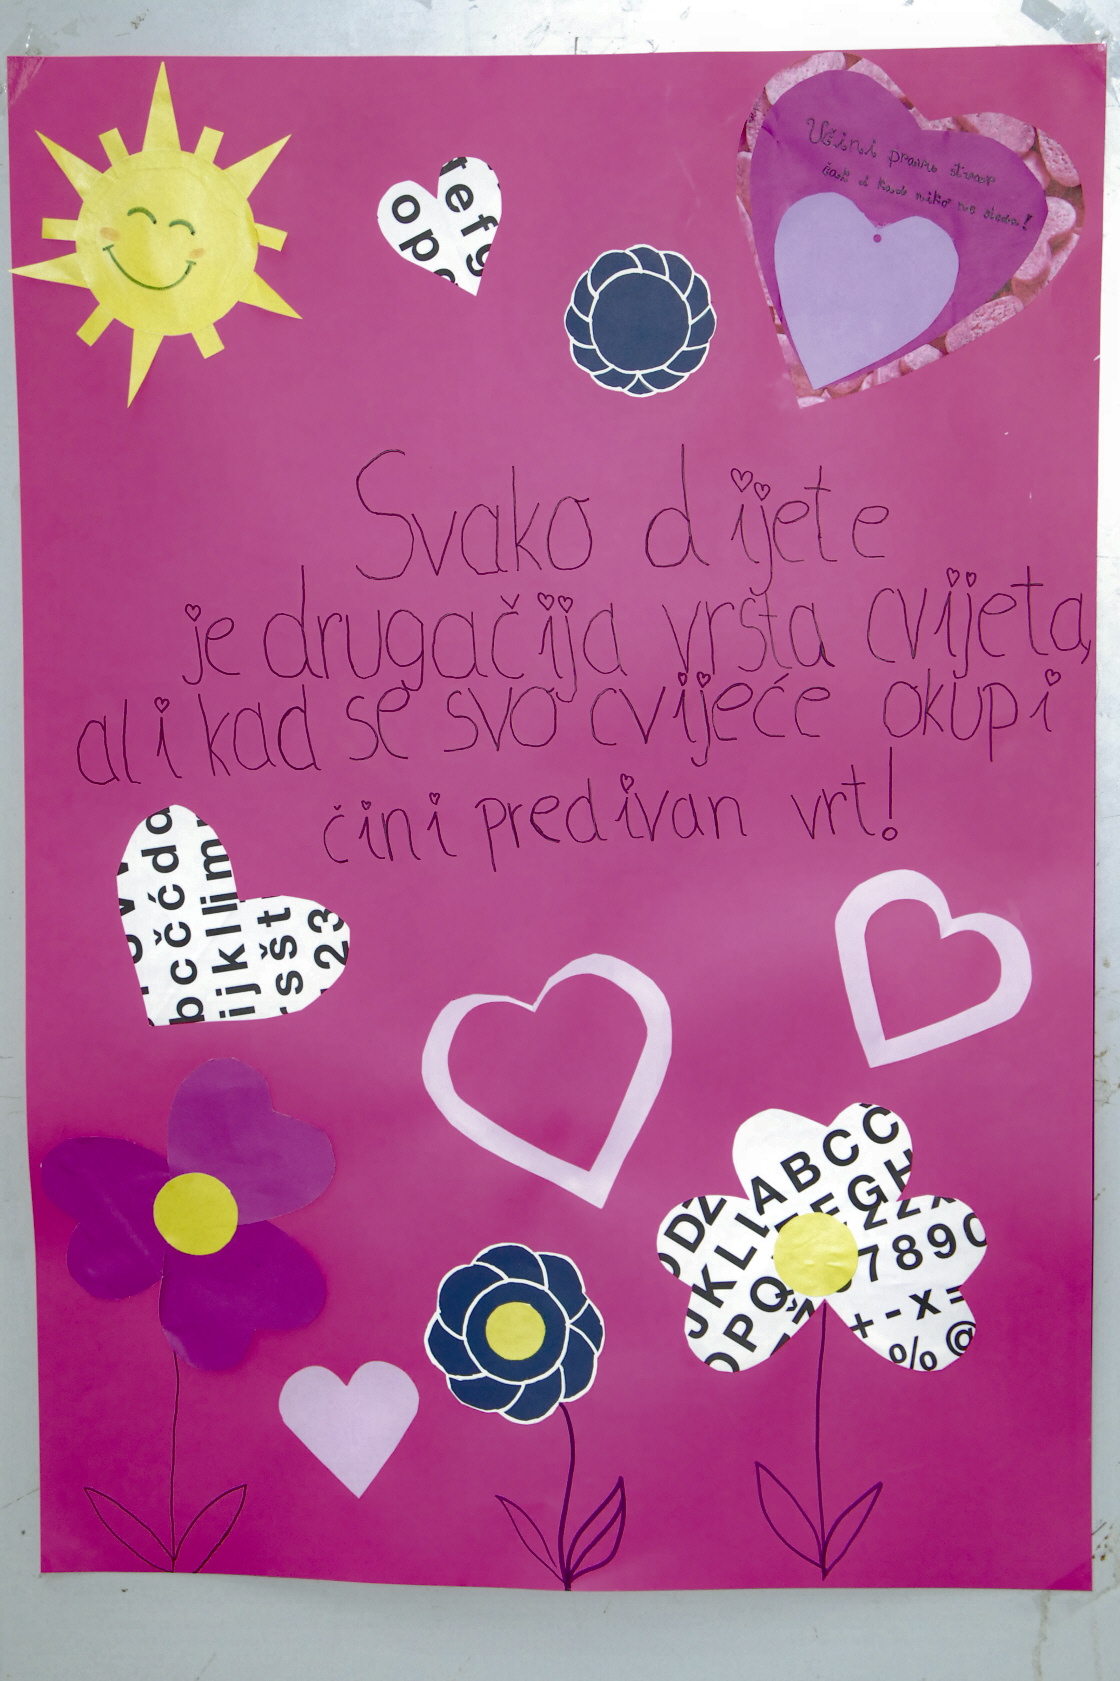 Učini pravu stvar
čak i kad niko ne gleda!
tefg
opc
Svako dijete
je drugačija vrsta cvijeta,
ali kad se svo cvijeće okupi
čini predivan vrt!
bcčćd
ijklljm
sšt
123
ABCČ
FGH
DZ
JKLL
OPQ
7890
+-x=
%@